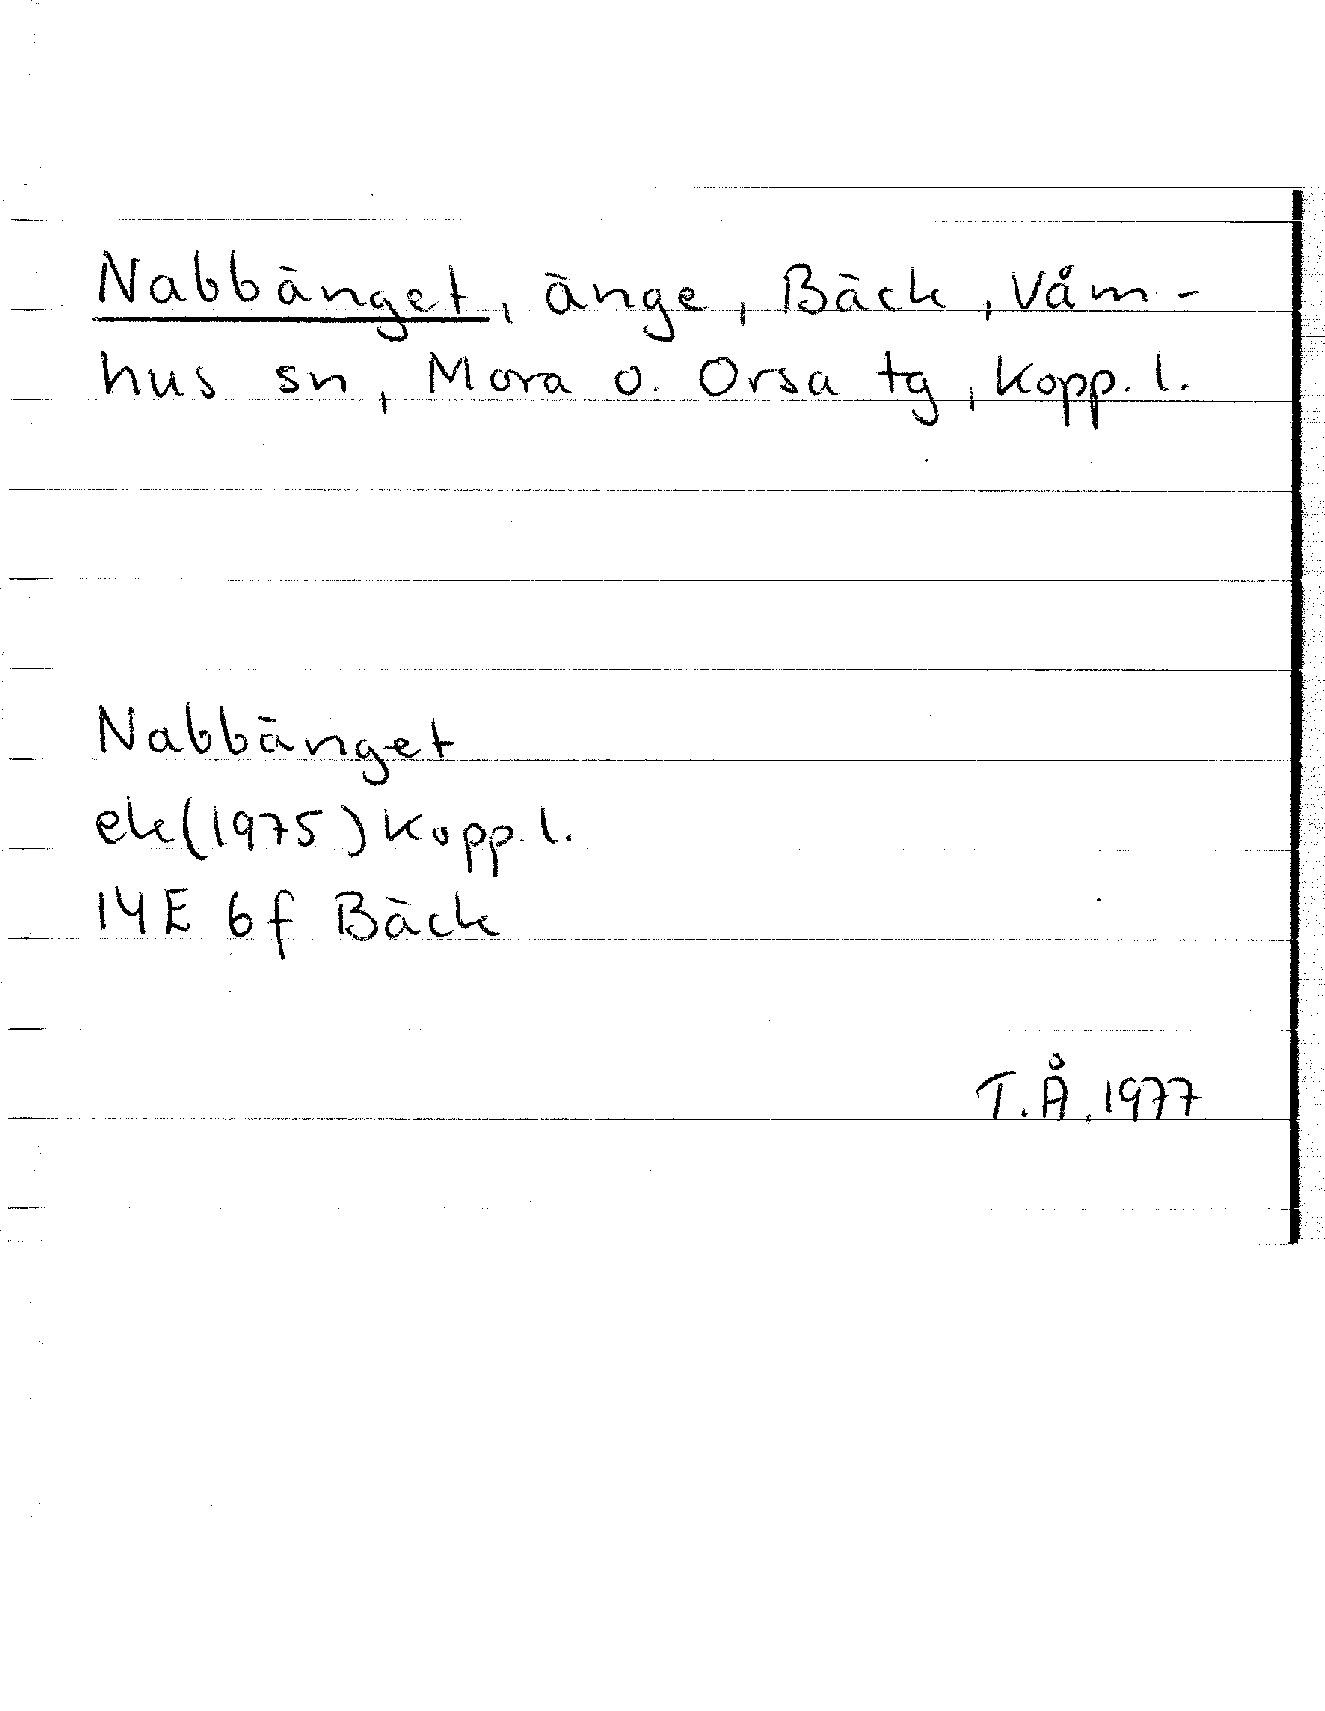 Nabbänget, änge, Bäck, Våm-
hus sn, Mora o. Orsa tg, Kopp. l.
Nabbänget
ek(1975) Kopp. l.
14E 6f Bäck
T.Å. 1977